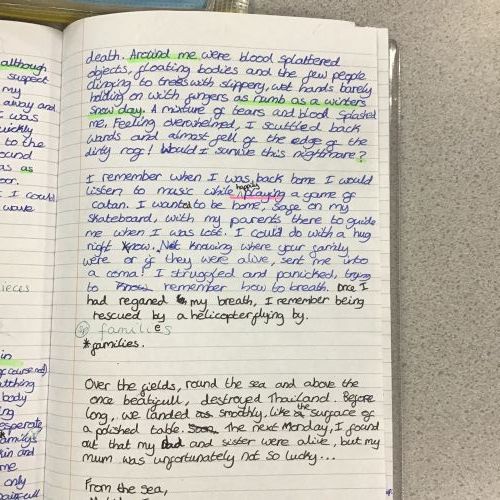 although
suspect
my
away and
I was
quickly
to the
ound
as as
oor.
I could
wave
ieces
in
of course not)
tching
body
ing
esperate
family's
kin and
me
only
painfull
death. Around me were blood splattered
objects, floating bodies and the few people
clinging to trees with slippery, wet hands barely
holding on with fingers as numb as a winters
snow day. A mixture of tears and blood splashed
me. Feeling overwhelmed, I scuttled back
wards and almost fell of the edge of the
dirty roof! Would I survive this nightmare?
I remember when I was back home I would
listen to music while happily playing a game of
catan. I want to be home, safe on my
skateboard, with my parents there to guide
me when I was lost. I could do with a hug
right know. Not knowing where your family
were or if they were alive, sent me into
a coma! I struggled and panicked, trying
to Know remember how to breath. Once I
had regained my breath, I remember being
rescued by a helicopter flying by.
sp families
*families.
Over the fields, round the sea and above the
once beatifull, destroyed Thailand. Before
long, we landed as smoothly, like the surface of
a polished table. Soon, The next Monday, I found
out that my Dad and sister were alive, but my
mum was unfortunately not so lucky...
From the sea,